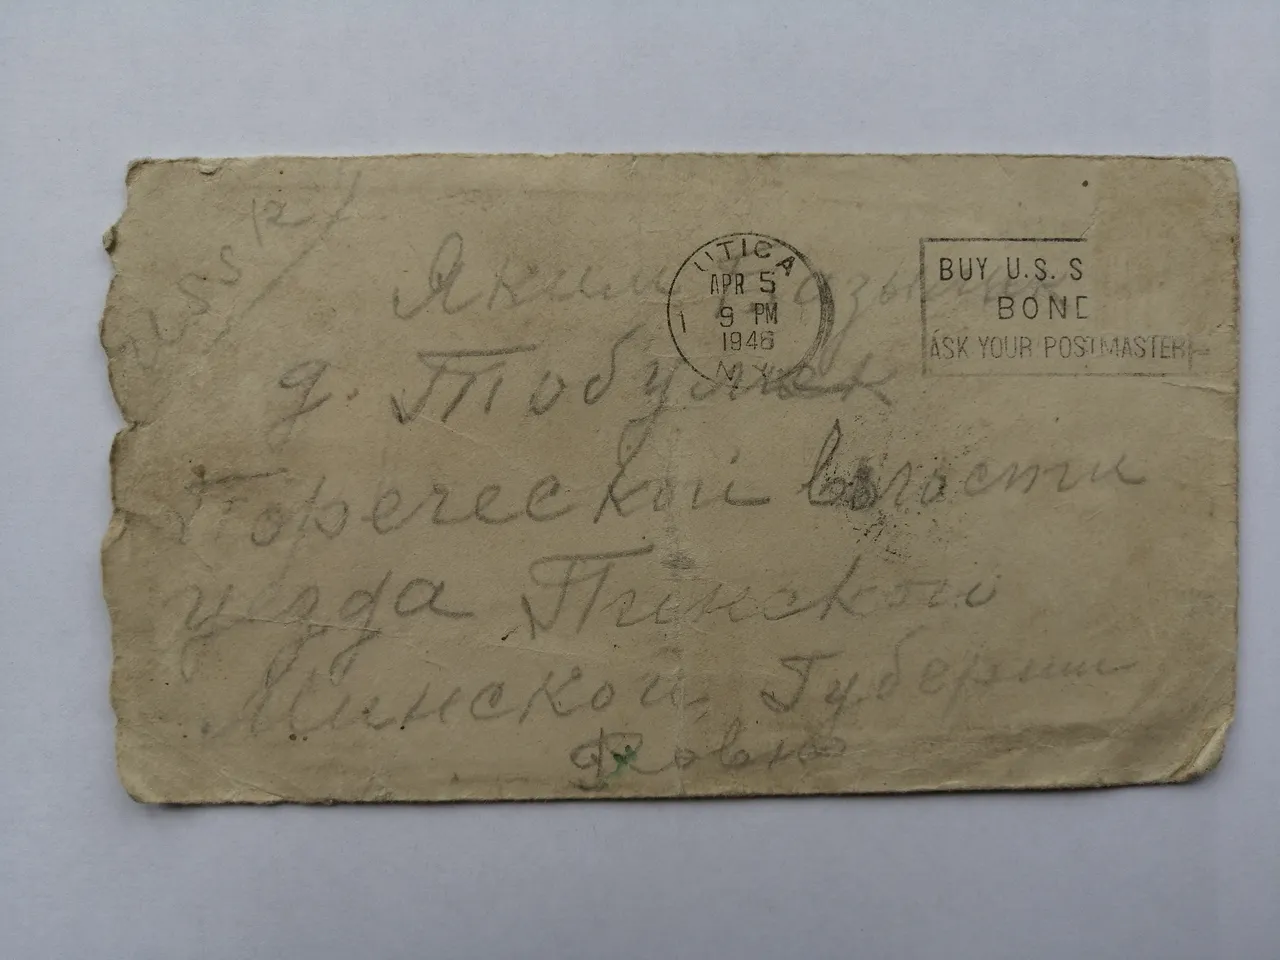 12
UTICA
APR 5
9 PM
1946
N.Y.
1
BUY U.S. S
BOND
ASK YOUR POSTMASTER
Яким
д. Тобулки
Пореческой волости
уезда Пинской
Минской Губернии